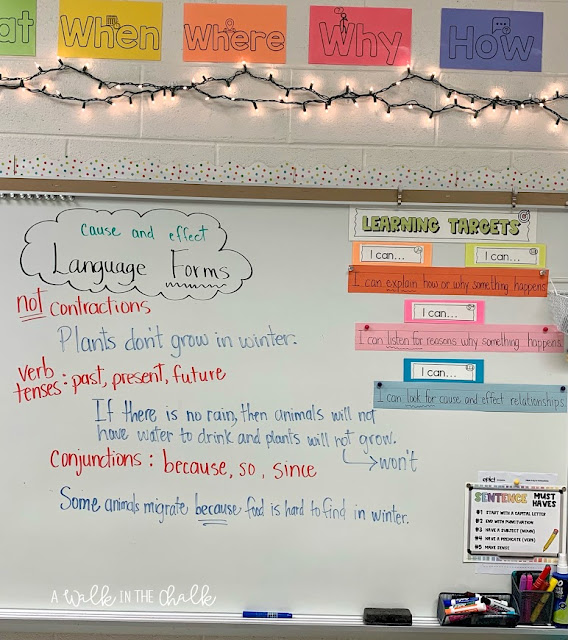 at
When
Where
Why
How
cause and effect
Language Forms
not contractions
Plants don't grow in winter.
verb
tenses: past, present, future
If there is no rain, then animals will not
have water to drink and plants will not grow.
won't
Conjunctions: because, so, since
Some animals migrate because food is hard to find in winter.
LEARNING TARGETS
I can...
I can...
I can explain how or why something happens.
I can...
I can listen for reasons why something happens.
I can...
I can look for cause and effect relationships.
epic!
SENTENCE MUST HAVES
#1 START WITH A CAPITAL LETTER
#2 END WITH PUNCTUATION
#3 HAVE A SUBJECT (NOUN)
#4 HAVE A PREDICATE (VERB)
#5 MAKE SENSE
A Walk IN THE Chalk
EXPO